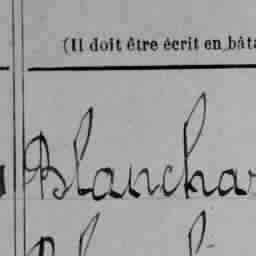 (Il doit être écrit en bâta
Blanchar